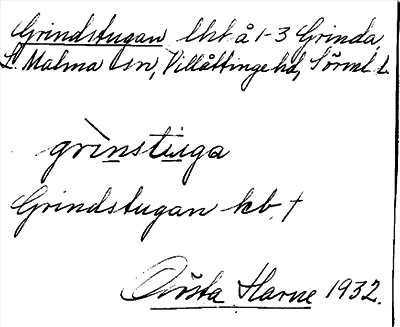 Grindstugan lht å 1-3 Grinda,
L. Malma sn, Villåttinge hd, Sörml. l.
grìnstuga
Grindstugan kb, †
Gösta Harne 1932.